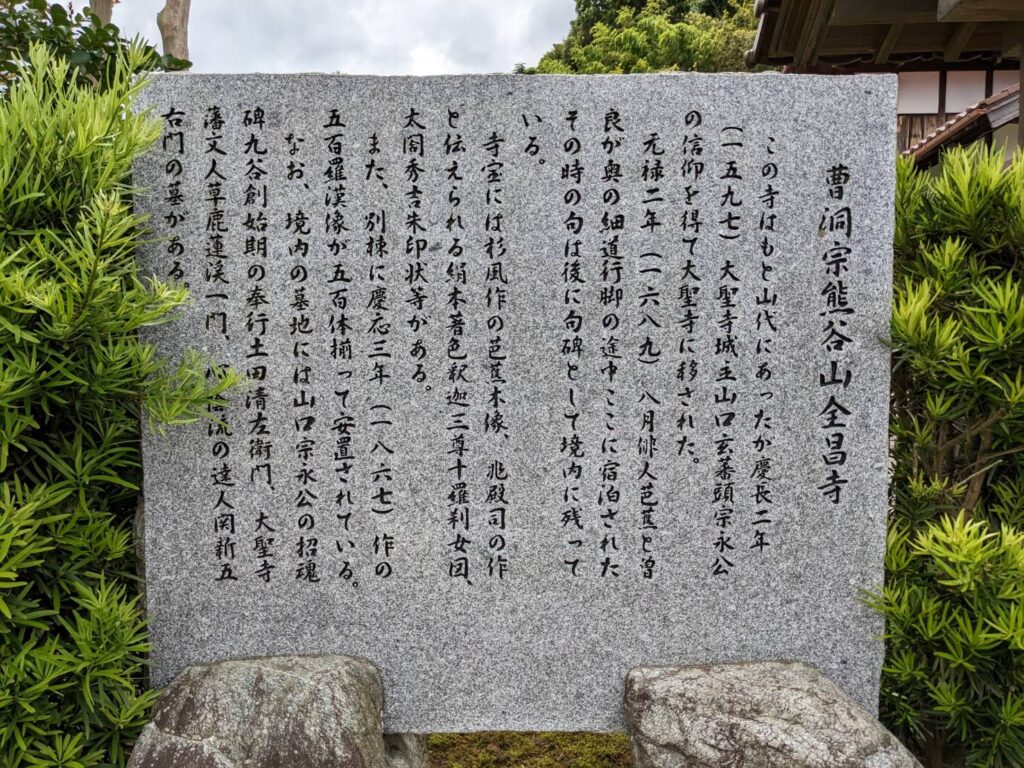 曹洞宗熊谷山全昌寺
この寺はもと山代にあったが慶長二年
(一五九七)大聖寺城主山口玄蕃頭宗永公
の信仰を得て大聖寺に移された。
元禄二年(一六八九)八月俳人芭蕉と曽
良が奥の細道行脚の途中ここに宿泊された
その時の句は後に句碑として境内に残って
いる。
寺宝には杉風作の芭蕉木像、兆殿司の作
と伝えられる絹本著色釈迦三尊十羅刹女図、
太閤秀吉朱印状等がある。
また、別棟に慶応三年(一八六七)作の
五百羅漢像が五百体揃って安置されている。
なお、境内の墓地には山口宗永公の招魂
碑九谷創始期の奉行土田清左衛門、大聖寺
藩文人草鹿蓮渓一門、流の達人関新五
右門の墓がある